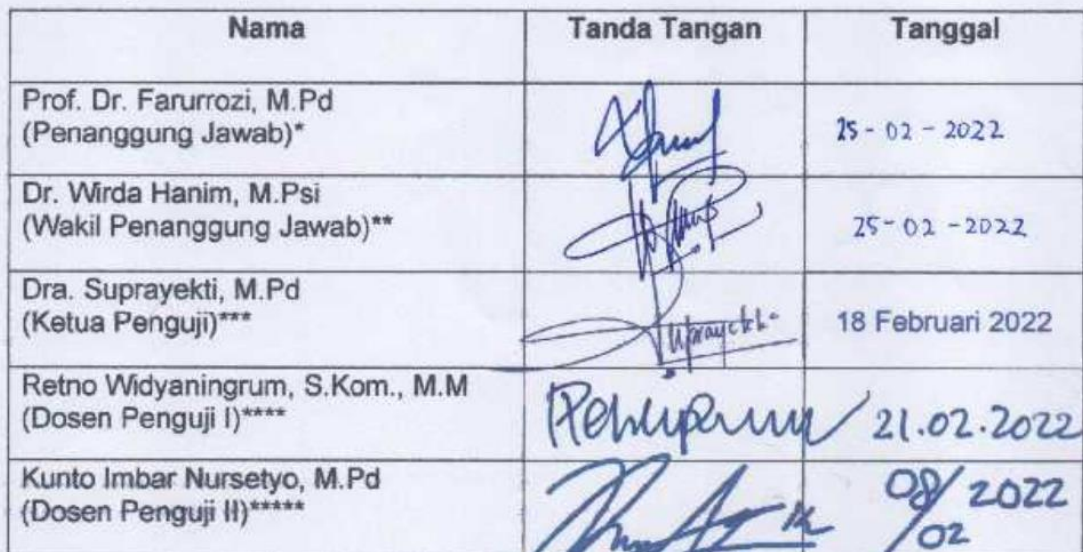 Nama Tanda Tangan Tanggal
Prof. Dr. Farurrozi, M.Pd
(Penanggung Jawab)* 25-02-2022
Dr. Wirda Hanim, M.Psi
(Wakil Penanggung Jawab)** 25-02-2022
Dra. Suprayekti, M.Pd
(Ketua Penguji)*** 18 Februari 2022
Retno Widyaningrum, S.Kom., M.M
(Dosen Penguji I)**** 21.02.2022
Kunto Imbar Nursetyo, M.Pd
(Dosen Penguji II)***** 08/02 2022